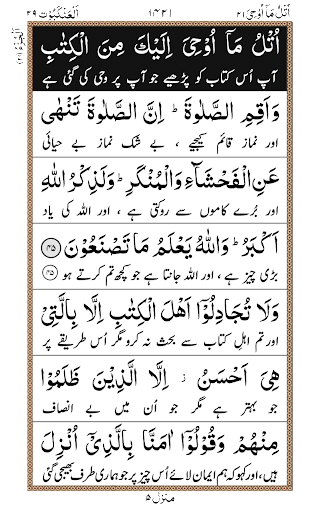 اُتْلُ مَاۤ اُوْحِیَ ۲۱ (۱۴۲۱) اَلْعَنْکَبُوْت ۲۹
اَلْجُزْءُ (۲۱)
اُتْلُ مَاۤ اُوْحِیَ اِلَیْكَ مِنَ الْكِتٰبِ
آپ اُس کتاب کو پڑھیے جو آپ پر وحی کی گئی ہے
وَاَقِمِ الصَّلٰوةَ ؕ اِنَّ الصَّلٰوةَ تَنْهٰی
اور نماز قائم کیجیے ، بے شک نماز بے حیائی
عَنِ الْفَحْشَآءِ وَالْمُنْكَرِ ؕ وَلَذِكْرُ اللّٰهِ
اور بُرے کاموں سے روکتی ہے ، اور اللہ کی یاد
اَكْبَرُ ؕ وَاللّٰهُ یَعْلَمُ مَا تَصْنَعُوْنَ ﴿۴۵﴾
بڑی چیز ہے ، اور اللہ جانتا ہے جو کچھ تم کرتے ہو ﴿۴۵﴾
وَلَا تُجَادِلُوْۤا اَهْلَ الْكِتٰبِ اِلَّا بِالَّتِیْ
اور تم اہلِ کتاب سے بحث نہ کرو مگر اُس طریقے پر
هِیَ اَحْسَنُ ۖ اِلَّا الَّذِیْنَ ظَلَمُوْا
جو بہتر ہے مگر جو اُن میں بے انصاف
مِنْهُمْ وَقُوْلُوْۤا اٰمَنَّا بِالَّذِیْۤ اُنْزِلَ
ہیں ، اور کہو کہ ہم ایمان لائے اُس چیز پر جو ہماری طرف بھیجی گئی
منزل ۵